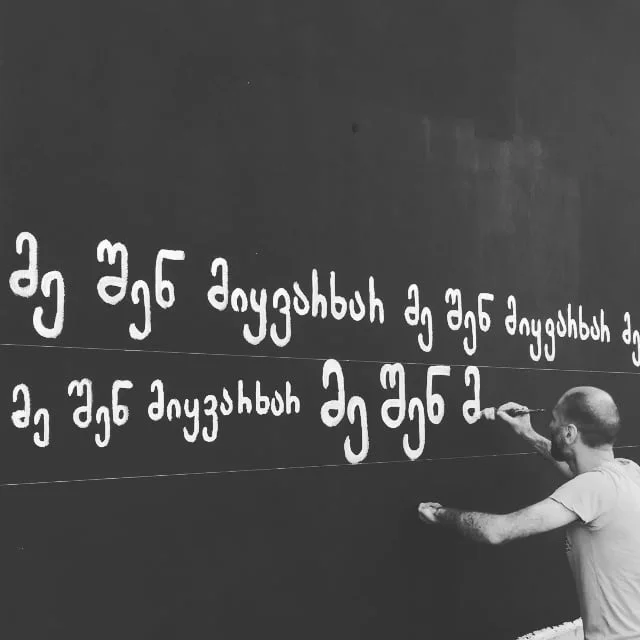 მე შენ მიყვარხარ მე შენ მიყვარხარ მე
მე შენ მიყვარხარ მე შენ მ